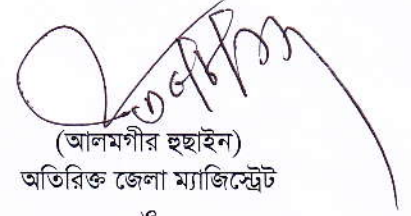 (আলমগীর হুছাইন)
অতিরিক্ত জেলা ম্যাজিস্ট্রেট
ও